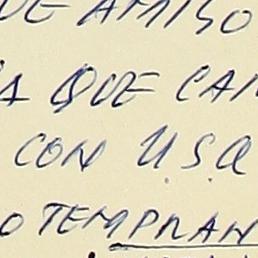 DE AMISO
A QUE CAM
CON U.S.A
O TEMPRAN